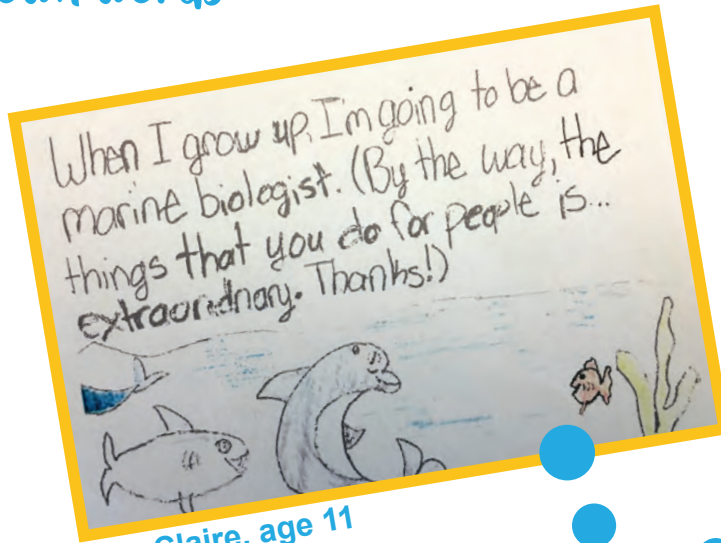 words
When I grow up, I'm going to be a
marine biologist. (By the way, the
things that you do for people is...
extraordnary. Thanks!)
Claire, age 11